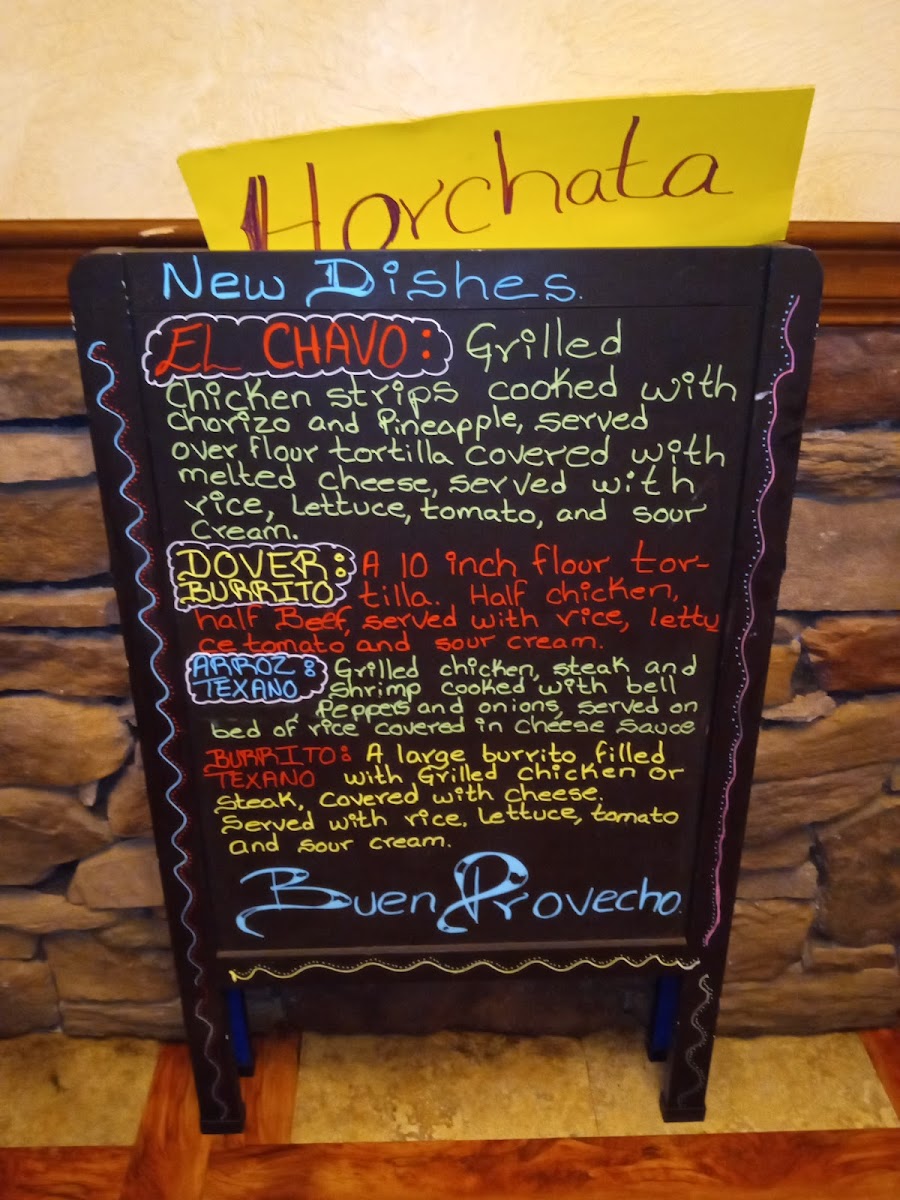 Horchata
New Dishes.
EL CHAVO: Grilled
Chicken strips cooked with
Chorizo and Pineapple, served
over flour tortilla covered with
melted cheese, served with
rice, Lettuce, tomato, and sour
Cream.
DOVER: A 10 inch flour tor-
BURRITO tilla. Half chicken,
half Beef, served with rice, lettu
ce tomato and sour cream.
ARROZ: Grilled chicken, steak and
TEXANO Shrimp cooked with bell
Peppers and onions, served on
bed of rice covered in Cheese Sauce
BURRITO: A large burrito filled
TEXANO with Grilled Chicken or
Steak, Covered with Cheese.
Served with rice. Lettuce, tomato
and sour cream.
Buen Provecho.